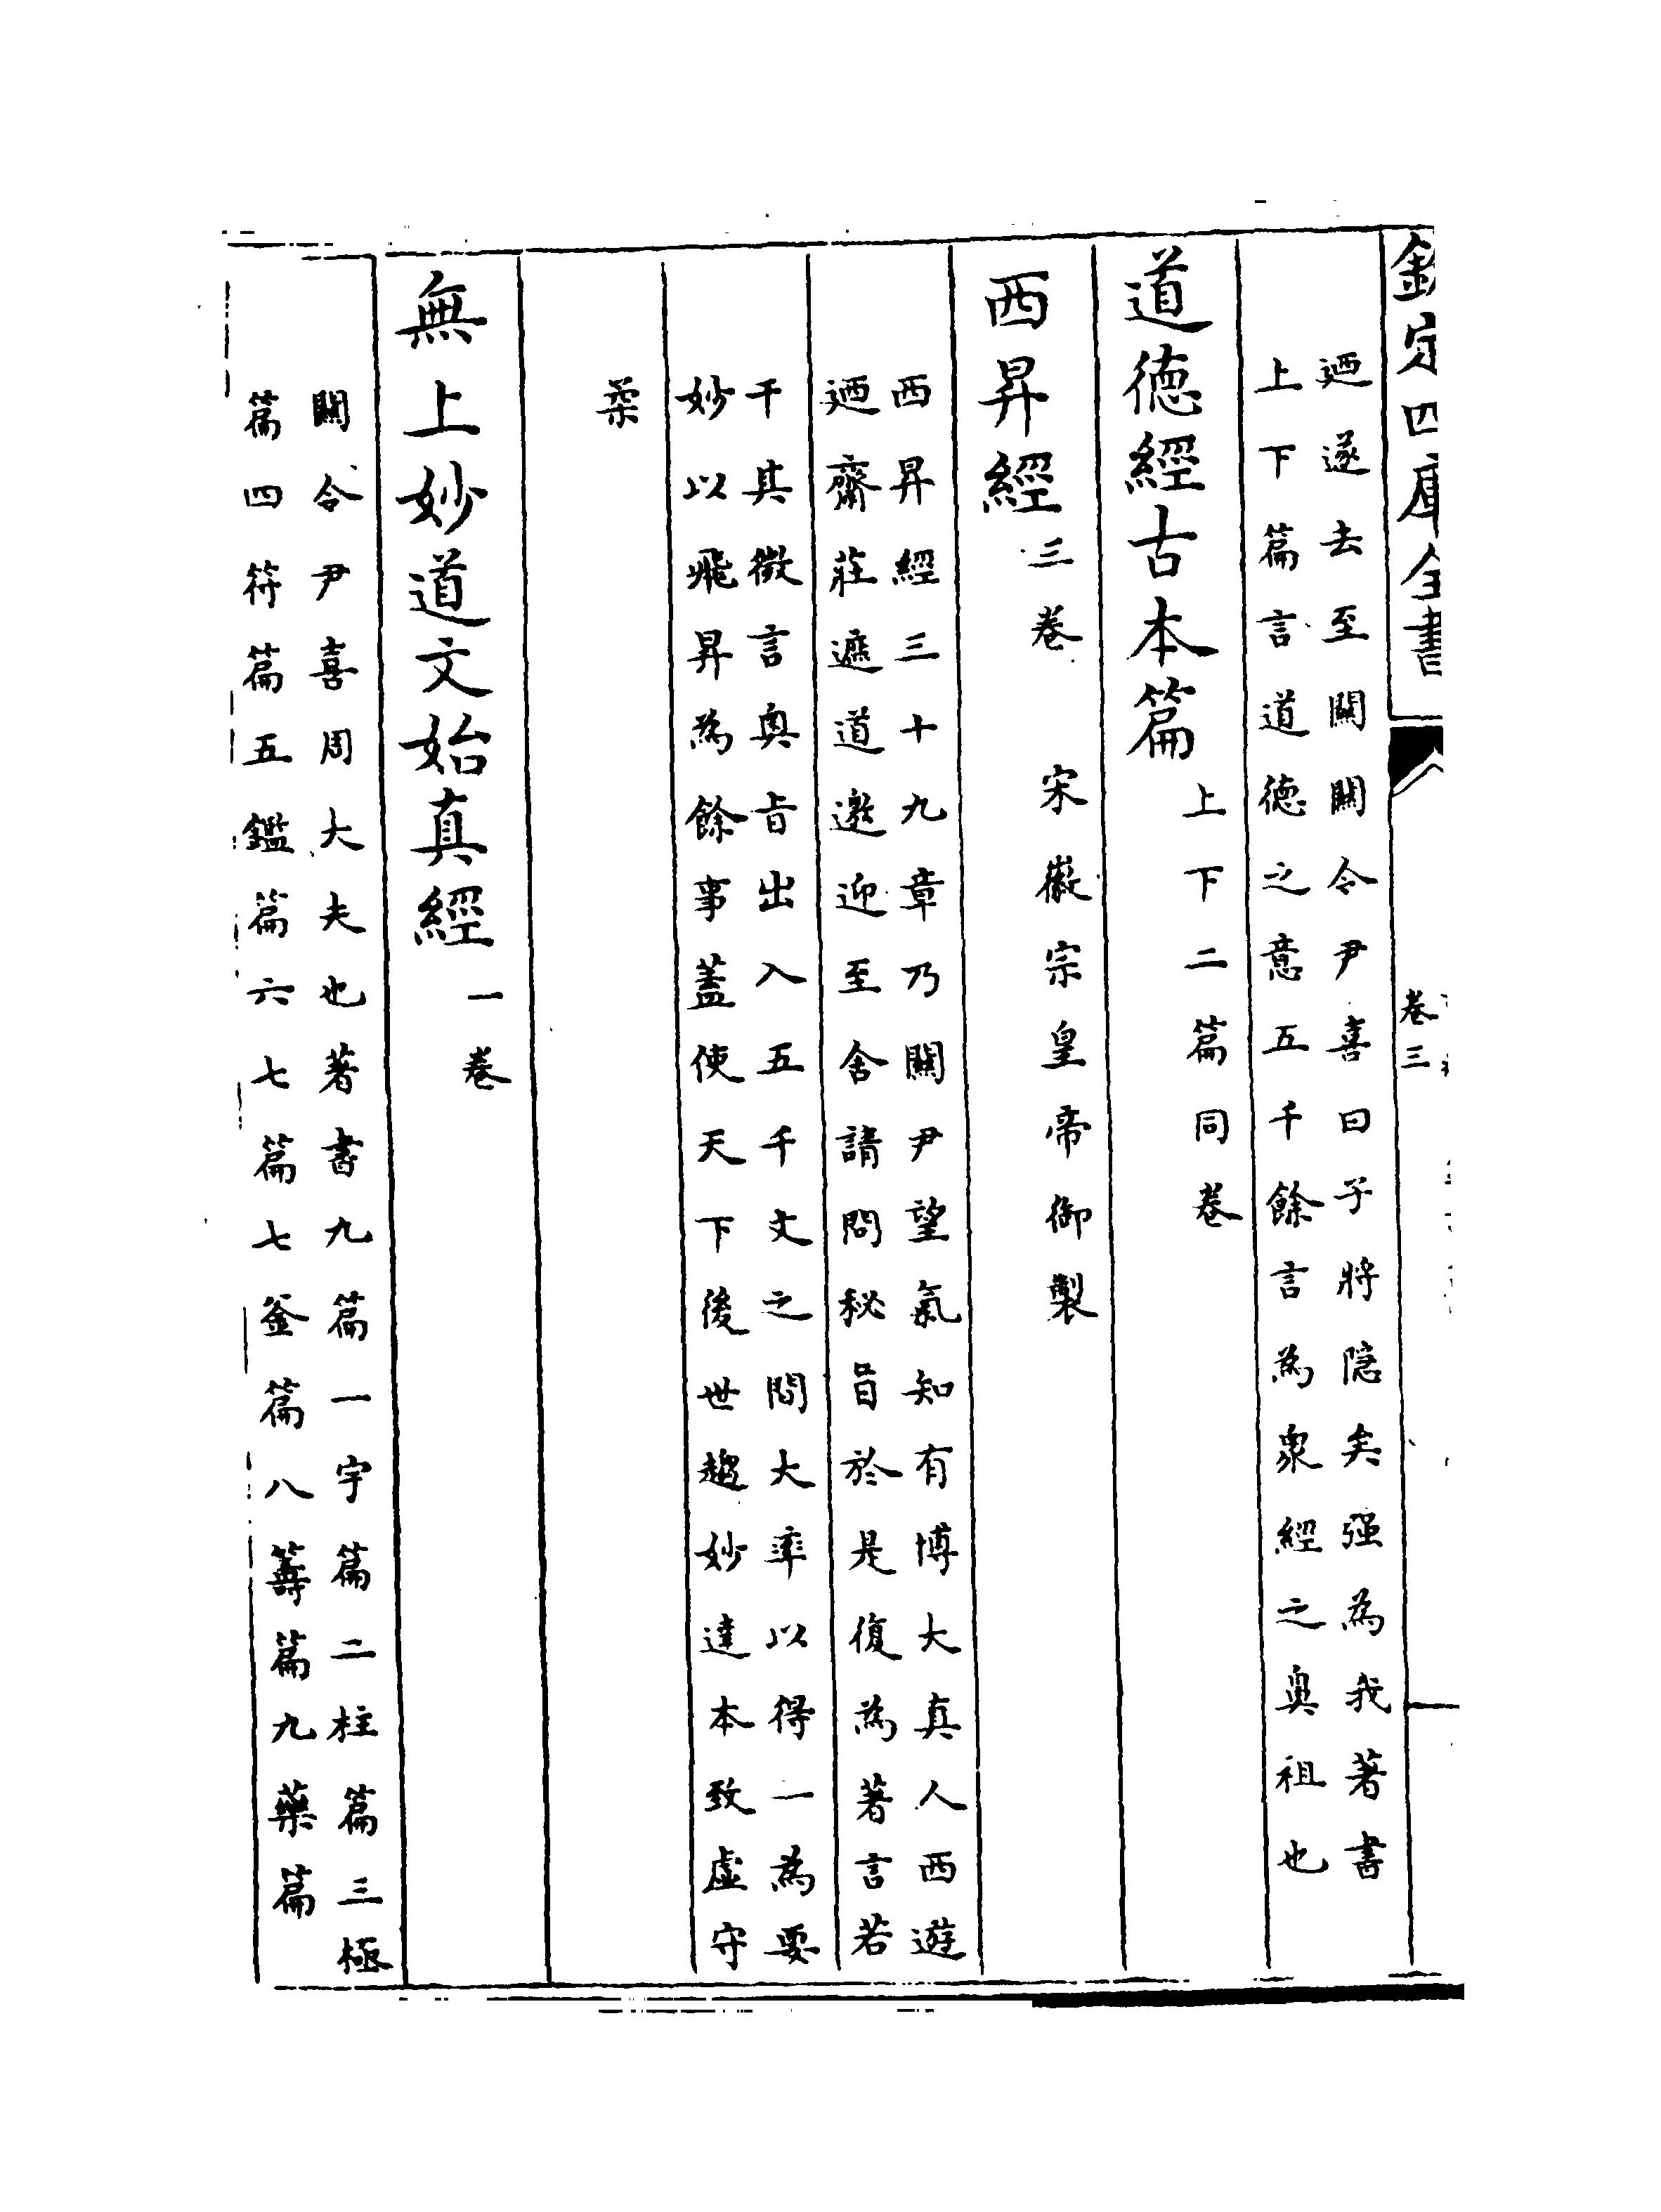 欽定四庫全書
卷三
迺遂去至關關令尹喜曰子將隱矣强為我著書
上下篇言道德之意五千餘言為衆經之奥祖也
道德經古本篇上下二篇同卷
西昇經三卷 宋徽宗皇帝御製
西昇經三十九章乃關尹望氣知有博大真人西遊
迺齋莊遮道邀迎至舍請問秘旨於是復為著言若
干其微言奥旨出入五千文之間大率以得一為要
妙以飛昇為餘事蓋使天下後世趨妙達本致虚守
柔
無上妙道文始真經一卷
關令尹喜周大夫也著書九篇一宇篇二柱篇三極
篇四符篇五鑑篇六七篇七釜篇八籌篇九藥篇